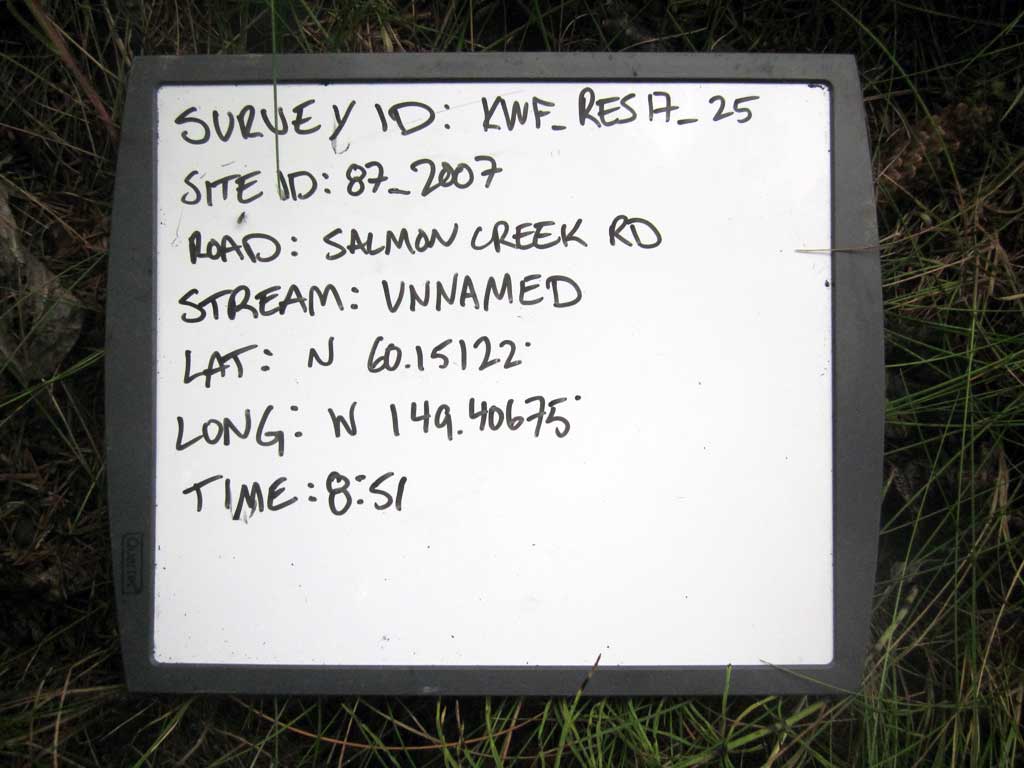 SURVEY ID: KWF_RES17_25
SITE ID: 87_2007
ROAD: SALMON CREEK RD
STREAM: UNNAMED
LAT: N 60.15122°
LONG: W 149.40675°
TIME: 8:51
Quartet